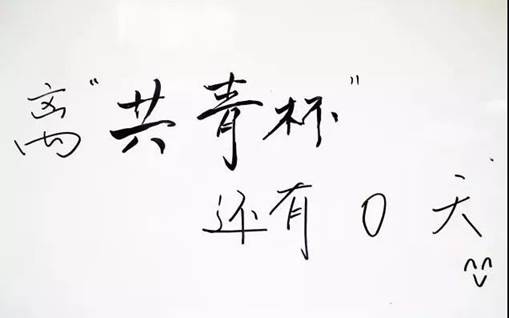 离“共青杯”
还有0天